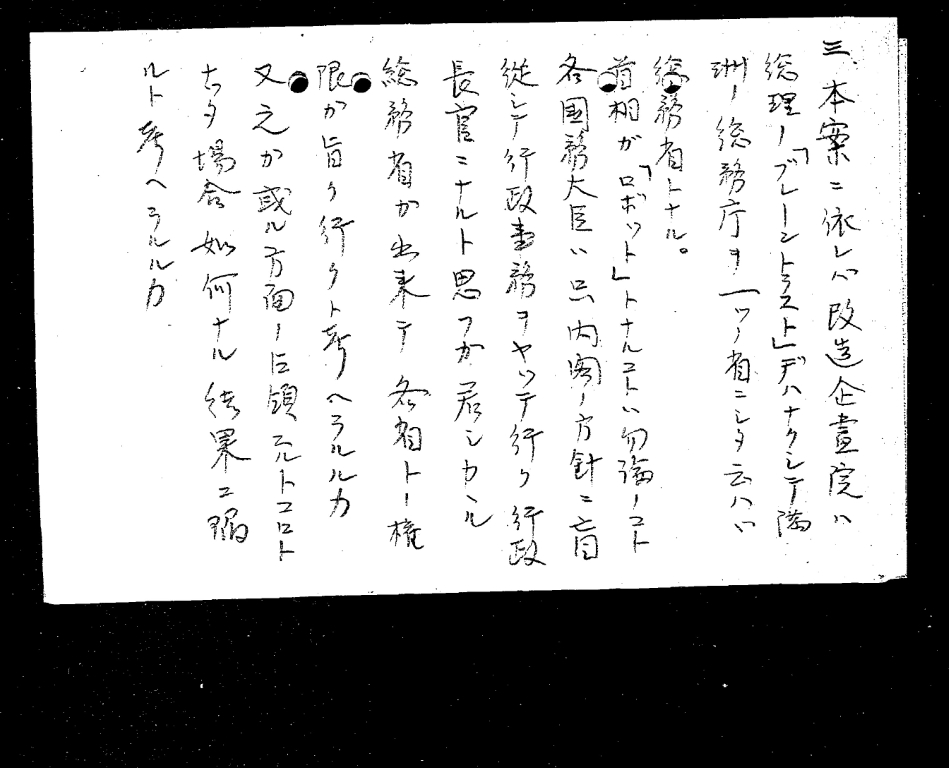 三、本案ニ依レバ改造企畫院ハ
総理ノ「ブレーントラスト」デハナクシテ満
洲ノ総務庁ヲ一ツノ省ニシタ云ハヾ
総務省トナル。
首相ガ「ロボット」トナルコトハ勿論ノコト
各国務大臣ハ只内閣ノ方針ニ盲
従シテ行政事務ヲヤッテ行ク行政
長官ニナルト思フガ若シカヽル
総務省ガ出来テ各省トノ権
限ガ旨ク行クト考ヘラルルカ
又之ガ或ル方面ノ占領 トコロト
ナッタ場合如何ナル結果ニ陥
ルト考ヘラルルカ